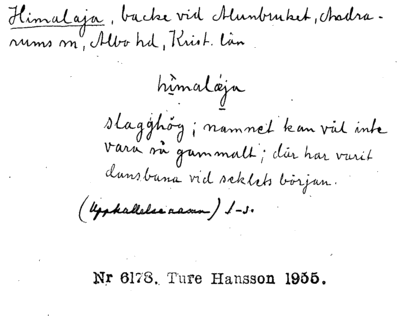 Himalaja, backe vid Alunbruket, Andra-
rums sn, Albo hd, Krist. län
hìmalája
slagghög; namnet kan väl inte
vara så gammalt; där har varit
dansbana vid seklets början.
(Uppkallelsenamn)
Nr 6178. Ture Hansson 1955.